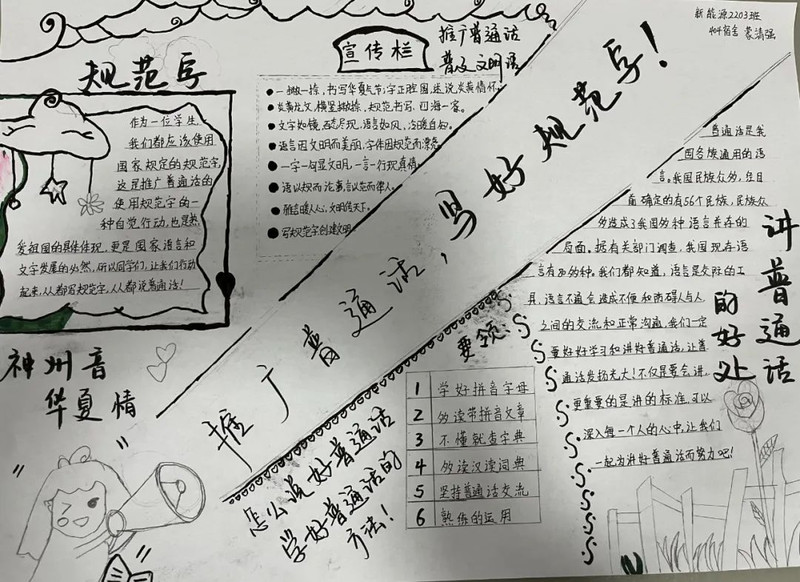 新能源2203班
404宿舍 蒙清强
规范字
作为一位学生,
我们都应该使用
国家规定的规范字,
这是推广普通话的
使用规范字的一
种自觉行动,也是热
爱祖国的具体体现,更是国家语言和
文字发展的必然,所以同学们,让我们行动
起来,人人都写规范字,人人都说普通话!
宣传栏
推广普通话
普及文明语
一撇一捺,书写华夏气节;字正腔圆,述说炎黄情怀。
炎黄儿女,横竖撇捺,规范书写,四海一家。
文字如镜,尽现,语言如风,冷暖自知。
语言因文明而美丽,字体因规范而漂亮
一字一句显文明,一言一行现真情。
语以规而论事,言以范而律人。
雅言暖人心,文明传天下。
写规范字创建文明
推广普通话,写好规范字!
普通话是我
国各族通用的语
言。我国民族众多,经目
前确定的有56个民族,民族众
多造成了我国多种语言并存的
局面。据有关部门调查,我国现存语
言有80多种。我们都知道,语言是交际的工
具,语言不通会造成不便和阻碍人与人
之间的交流和正常沟通。我们一定
要好好学习和讲好普通话,让普
通话发扬光大!不仅是要会讲,
更重要的是讲的标准。可以
深入每一个人的心中,让我们
一起为讲好普通话而努力吧!
讲普通话
的好处
神州音
华夏情
要领:
1 学好拼音字母
2 多读带拼音文章
3 不懂就查字典
4 多读汉读词典
5 坚持普通话交流
6 熟练的运用
怎么说好普通话
学好普通话的
方法!